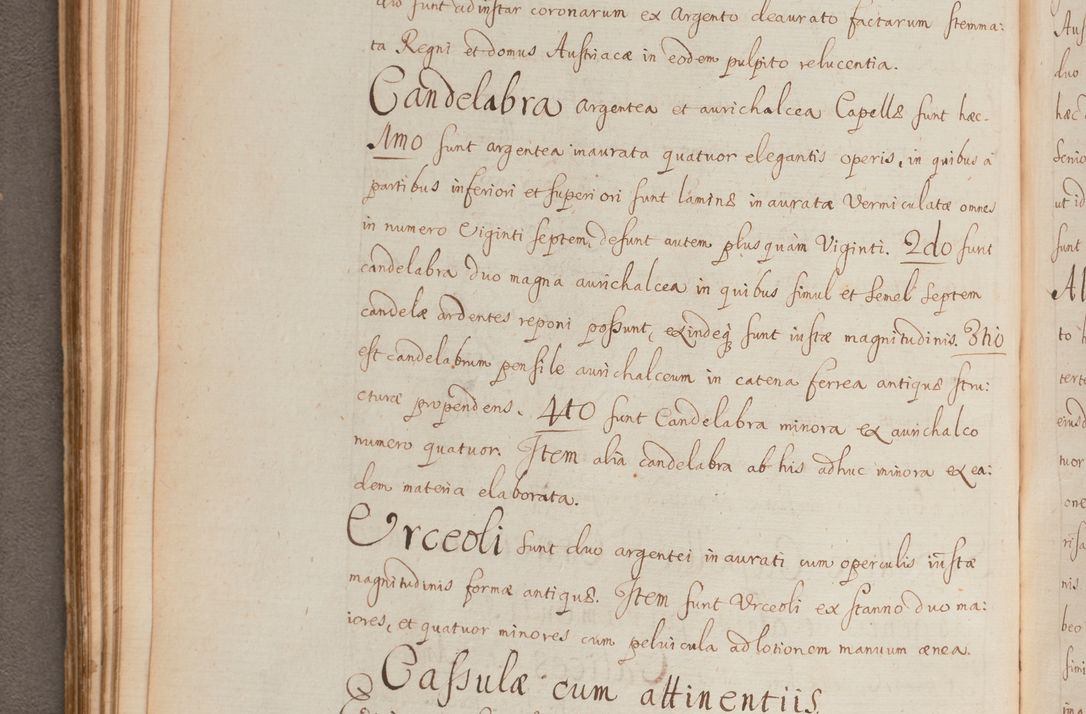 duo sunt ad instar coronarum ex Argento deaurato factarum stemma:
ta Regni et domus Austriacæ in eodem pulpito relucentia.
Candelabra argentea et aurichalcea Capellæ sunt hæc.
1mo sunt argentea inaurata quatuor elegantis operis, in quibus a
partibus inferiori et superiori sunt laminæ inauratæ vermiculatæ omnes
in numero Viginti septem, desunt autem plusquàm Viginti. 2do sunt
candelabra duo magna aurichalcea in quibus simul et semel septem
candelæ ardentes reponi possunt, exindeq; sunt iustæ magnitudinis. 3tio
est candelabrum pensile aurichalceum in catena ferrea antiquæ stru:
cturæ propendens. 4to sunt Candelabra minora ex aurichalco
numero quatuor. Item alia candelabra ab his adhuc minora ex ea:
dem materia elaborata.
Urceoli sunt duo argentei inaurati cum operculis iustæ
magnitudinis formæ antiquæ. Item sunt Urceoli ex stanno duo ma:
iores, et quatuor minores cum pelvicula ad lotionem manuum ænea.
Cassulæ cum attinentiis.
Aus
duo
hæc
Senio
ut id
sunt
Al
to
tert
eiusd
tuor
one
risa
nis
beo
simi